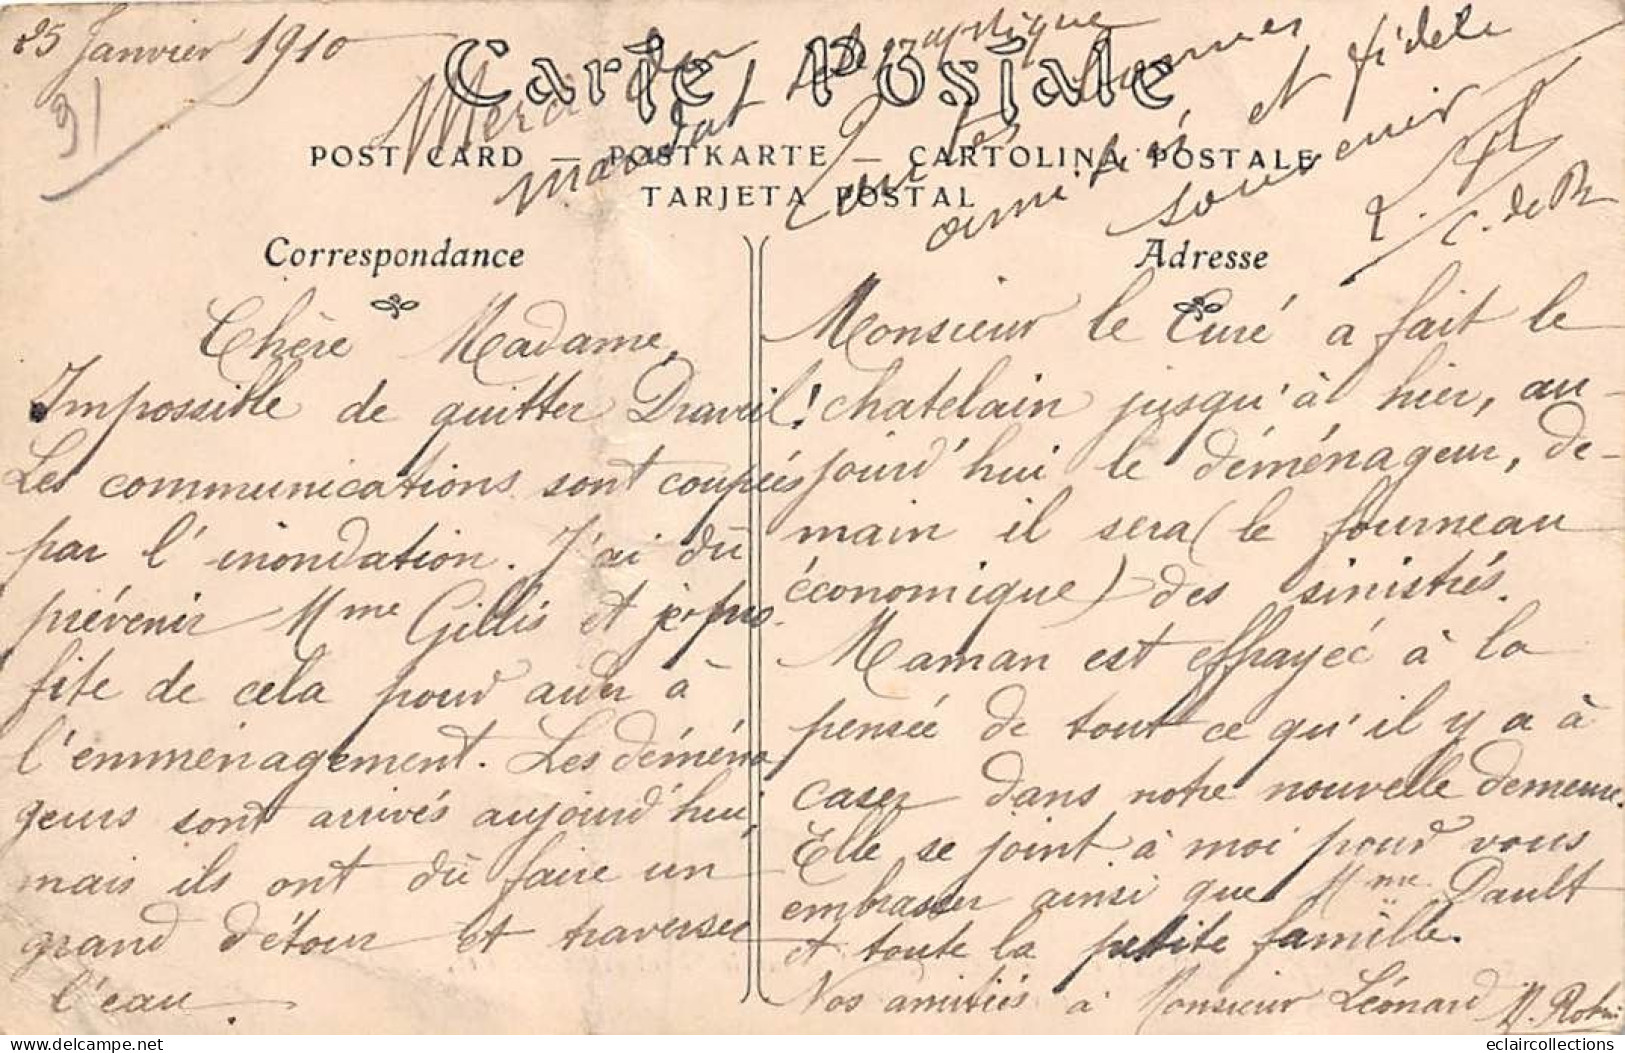 25 Janvier 1910
31
Merci du
mandat télégraphique
Carte Postale
POST CARD — POSTKARTE — CARTOLINA POSTALE
TARJETA POSTAL
bonnes
amitiés et fidèle
souvenir
C. de R
Correspondance
Chère Madame,
Impossible de quitter Draveil !
Les communications sont coupées
par l'inondation. J'ai dû
prévenir Mme Gillis et je pro-
fite de cela pour aider à
l'emménagement. Les déména
geurs sont arrivés aujourd'hui,
mais ils ont dû faire un
grand détour et traverser
l'eau.
Adresse
Monsieur le Curé a fait le
chatelain jusqu'à hier, au-
jourd'hui le déménageur, de-
main il sera (le fourneau
économique) des sinistrés.
Maman est effrayée à la
pensée de tout ce qu'il y a à
caser dans notre nouvelle demeure.
Elle se joint à moi pour vous
embrasser ainsi que Mme Dault
et toute la petite famille.
Nos amitiés à Monsieur Léonard M. Robin
eclaircollections
delcampe.net